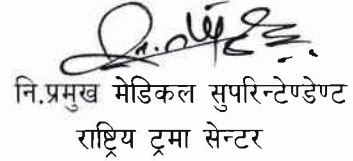 नि.प्रमुख मेडिकल सुपरिन्टेण्डेण्ट
राष्ट्रिय ट्रमा सेन्टर